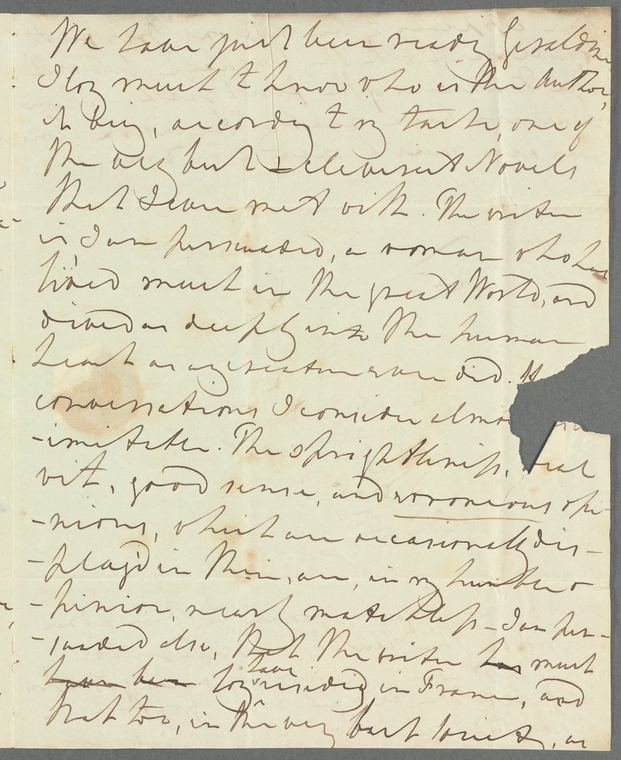 We have just been reading Geraldine
I long much to know who is the Author,
it being, according to my taste, one of
the very best & cleverest Novels
that I ever met with. The writer
is, I am persuaded, a woman who has
lived much in the great World, and
dived as deeply into the human
heart as any creature ever did. H
conversations I consider almo
-imitable. The sprightliness, real
wit, good sense, and erroneous opi-
-nions, which are occasionally dis-
-play'd in them, are, in my humble o
-pinion, nearly matchless - I am per-
-suaded also, that the writer has must
have been long have resided in France, and
that too, in the very best society, as